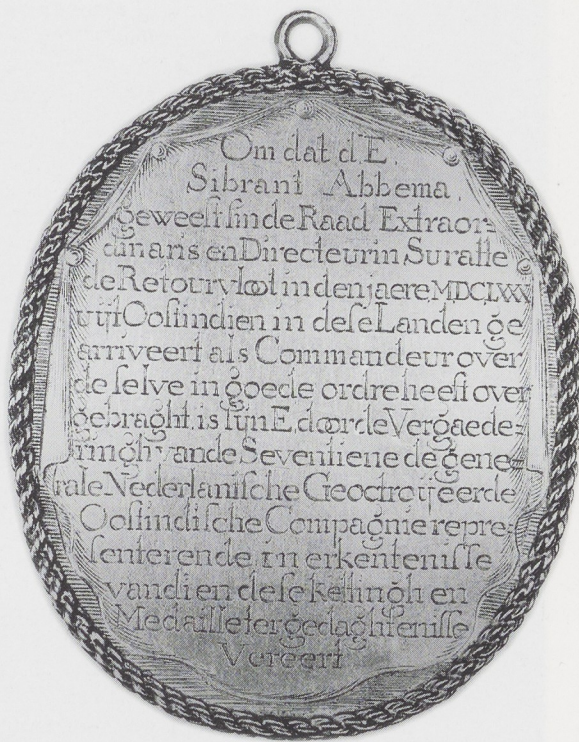 Om dat d'E.
Sibrant Abbema,
geweest sinde Raad Extraor-
dinaris en Directeur in Suratte
de Retourvloot in den jaere MDCLXXX
uijt Oostindien in dese Landen ge
arriveert als Commandeur over
de selve in goede ordre heeft over
gebraght, is sijn E, door de Vergaede-
ringh vande Seventiene de gene-
rale Nederlantsche Geoctroijeerde
Oostindische Compagnie repre-
senterende, in erkentenisse
van dien dese kettingh en
Medaille ter gedaghtenisse
Vereert